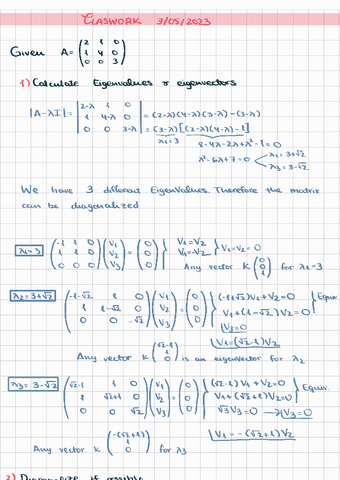 CLASWORK 3/05/2023
Given A= (2 1 0
1 4 0
0 0 3)
1) Calculate Eigenvalues π eigenvectors
|A-λI| = |2-λ 1 0
1 4-λ 0
0 0 3-λ| = (2-λ)(4-λ)(3-λ)-(3-λ)
= (3-λ)[(2-λ)(4-λ)-1]
λ1=3 8-4λ-2λ+λ²-1=0
λ²-6λ+7=0 λ2=3+√2
λ3=3-√2
We have 3 different EigenValues. Therefore the matrix
can be diagonalized
λ1=3 (-1 1 0
1 1 0
0 0 0) (V1
V2
V3) = (0
0
0) V1=V2
V1=-V2 V1=V2=0
Any vector K (0
0
1) for λ1=3
λ2=3+√2 (-1-√2 1 0
1 1-√2 0
0 0 -√2) (V1
V2
V3) = (0
0
0) (-1+√2)V1+V2=0
V1+(1-√2)V2=0 Equiv
V2=0
V1=(√2-1)V2
Any vector K (√2-1
1
0) is an eigenvector for λ2
λ3=3-√2 (√2-1 1 0
1 √2+1 0
0 0 √2) (V1
V2
V3) = (0
0
0) (√2-1)V1+V2=0
V1+(√2+1)V2=0 Equiv.
√3V3=0 → V3=0
V1=-(√2+1)V2
Any vector K (-(√2+1)
1
0) for λ3